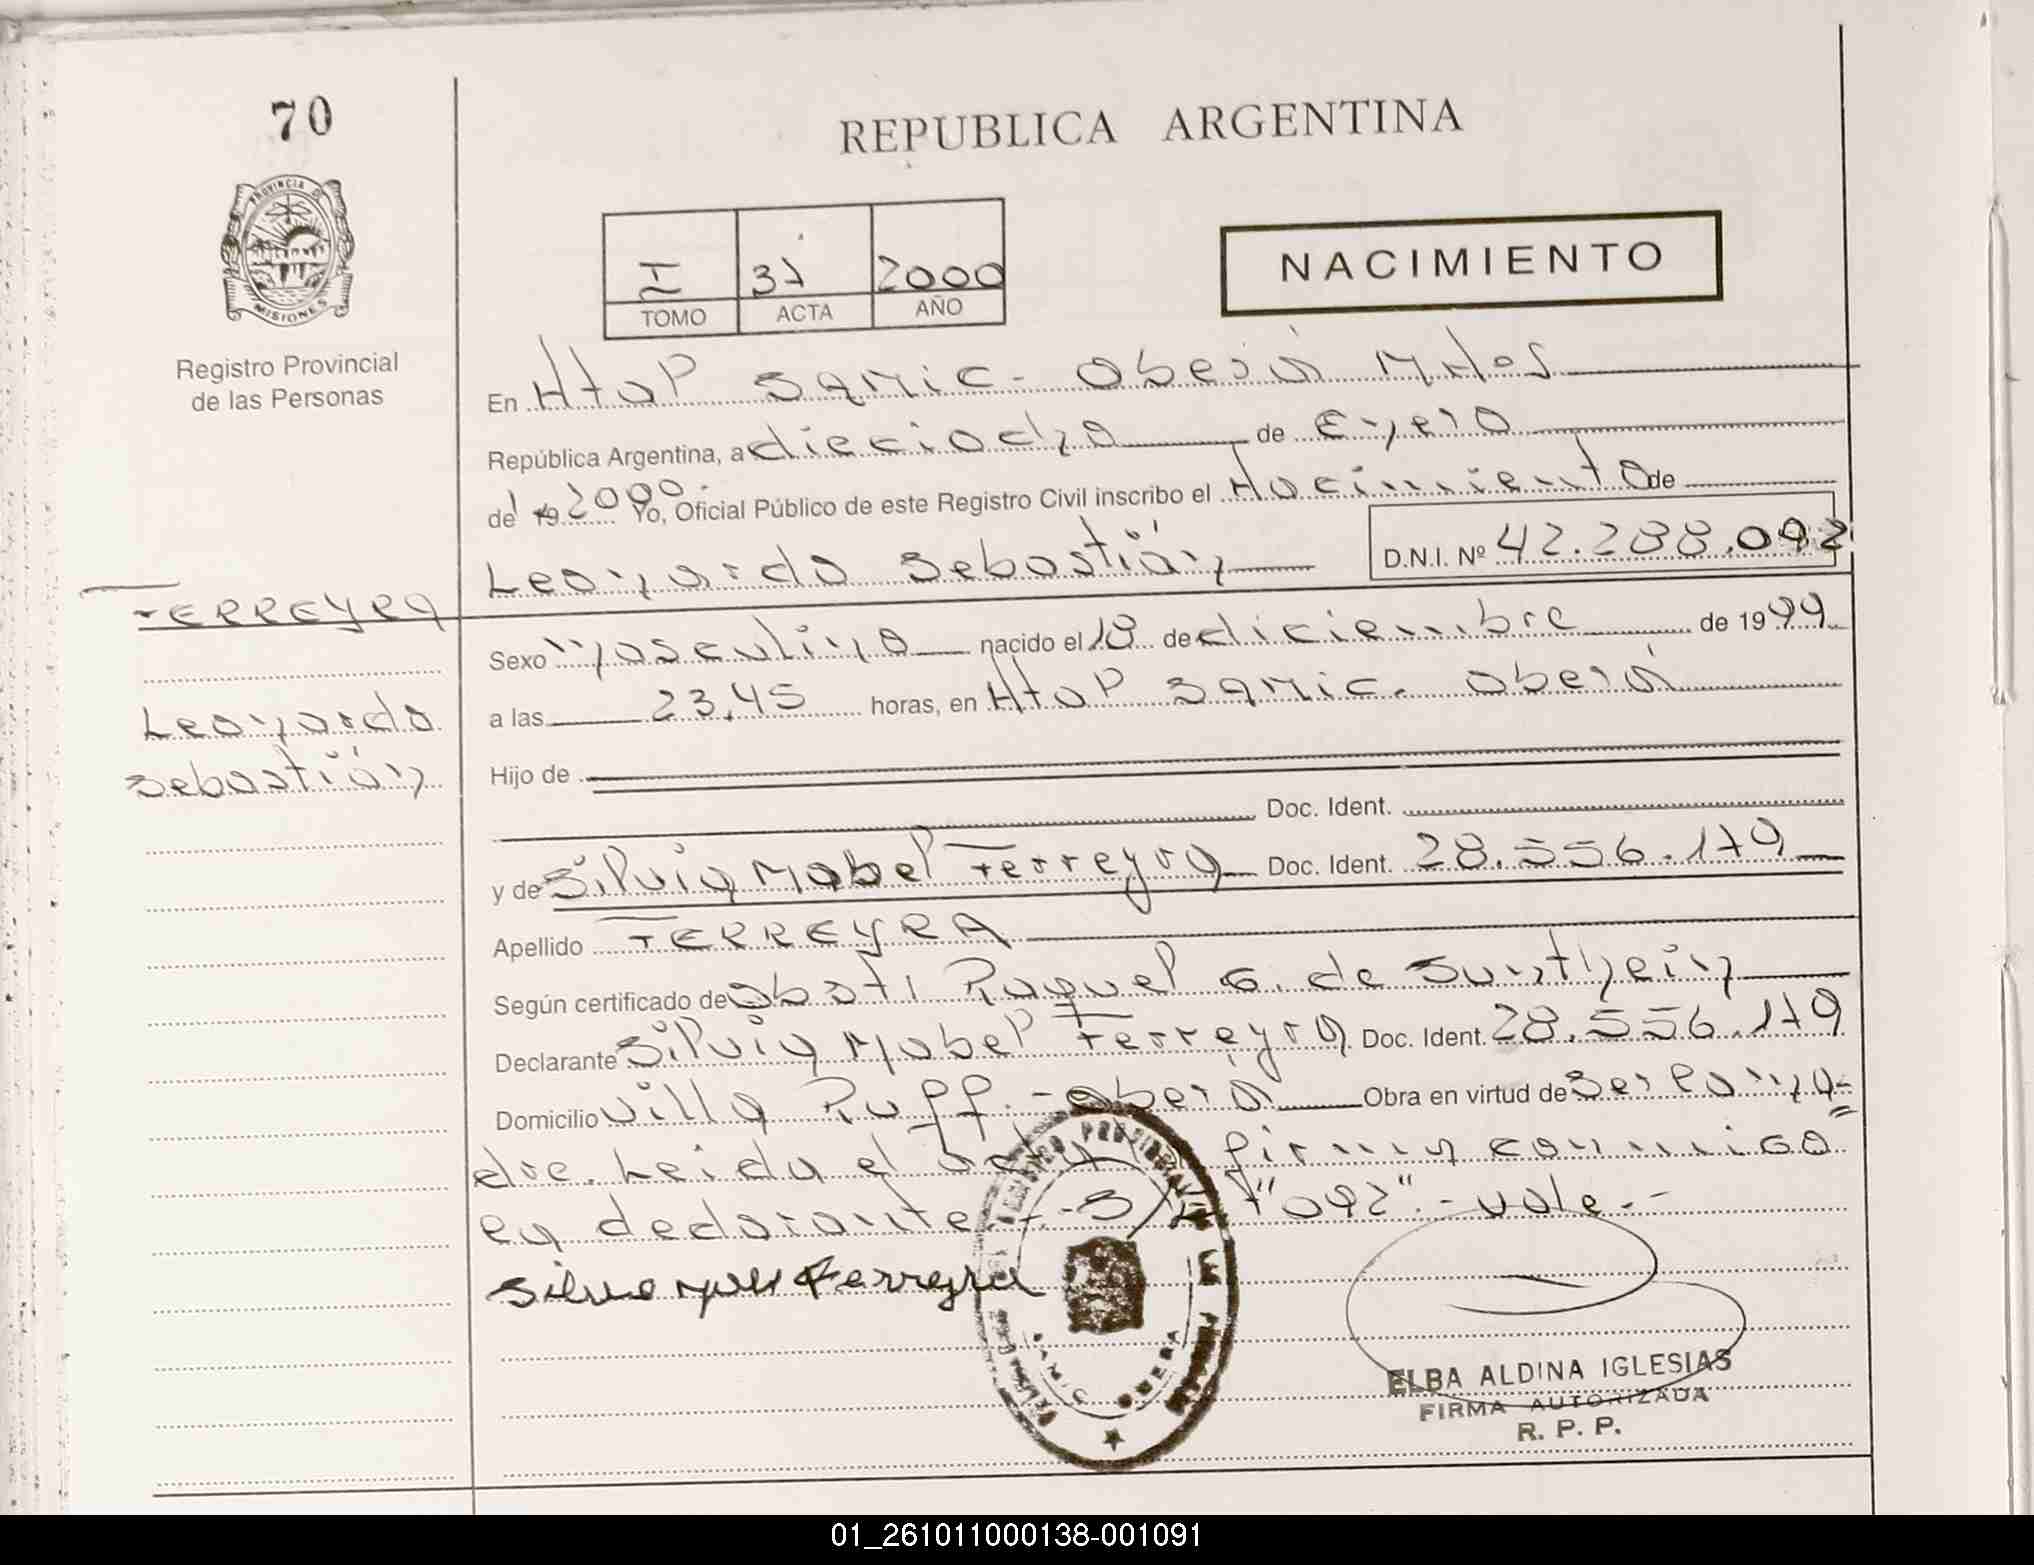 70
REPUBLICA ARGENTINA
PROVINCIA DE
MISIONES
I 37 2000
TOMO ACTA AÑO
NACIMIENTO
Registro Provincial
de las Personas
En Htal Samic - Oberá Mnes
República Argentina, a dieciocho de Enero
de 19 2000. Yo, Oficial Público de este Registro Civil inscribo el Nacimiento de
Leonardo Sebastián D.N.I. Nº 42.288.092
FERREYRA
Leonardo
Sebastián
Sexo Masculino nacido el 18 de diciembre de 1999
a las 23,45 horas, en Htal Samic. Oberá
Hijo de
Doc. Ident.
y de Silvia Mabel Ferreyra Doc. Ident. 28.556.179
Apellido FERREYRA
Según certificado de Obst. Raquel G. de
Declarante Silvia Mabel Ferreyra Doc. Ident. 28.556.179
Domicilio Villa Ruff. - Oberá Obra en virtud de Ser la ma=
dre. Leida el firma conmigo
la declarante. - S/R "092". - vale. -
Ferreyra
ELBA ALDINA IGLESIAS
FIRMA AUTORIZADA
R. P. P.
01_261011000138-001091